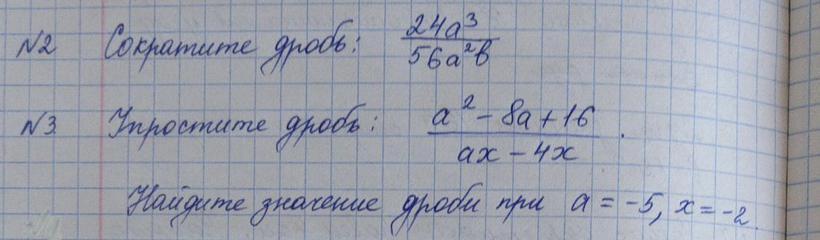 N2 Сократите дробь: 24a³/56a²b
N3. Упростите дробь: a² - 8a + 16/ax - 4x.
Найдите значение дроби при a = -5, x = -2.